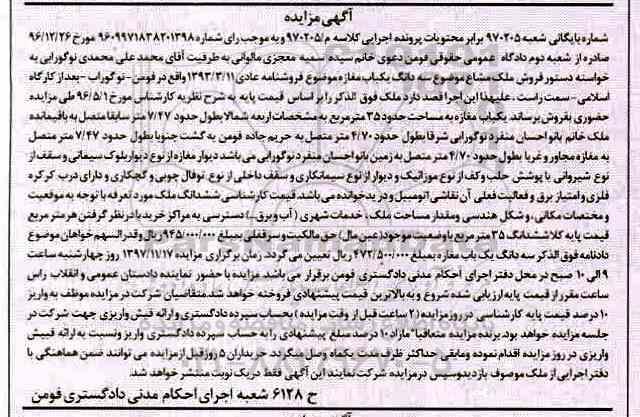 آگهی مزایده
شماره بایگانی شعبه ۹۷۰۲۰۵ برابر محتویات پرونده اجرایی کلاسه م/۹۷۰۲۰۵ و به موجب رای شماره ۹۶۰۹۹۷۱۸۳۸۲۰۱۳۹۸ مورخ ۹۶/۱۲/۲۶
صادره از شعبه دوم دادگاه عمومی حقوقی فومن دعوی خانم سیده سمیه معجزی مالوانی به طرفیت آقای محمد علی محمدی نوگورابی به
خواسته دستور فروش ملک مشاع موضوع سه دانگ یکباب مغازه موضوع فروشنامه عادی ۱۳۹۳/۳/۱۱ واقع در فومن - نوگوراب - بعد از کارگاه
اسلامی - سمت راست ، علیهذا این اجرا قصد دارد ملک فوق الذکر را بر اساس قیمت پایه به شرح نظریه کارشناس مورخ ۹۶/۵/۱ طی مزایده
حضوری بفروش برساند. یکباب مغازه به مساحت حدود ۳۵ متر مربع به مشخصات اربعه شمالا بطول حدود ۷/۴۷ متر سابقا متصل به باقیمانده
ملک خانم بانو احسان منفرد نوگورابی شرقا بطول حدود ۴/۷۰ متر متصل به حریم جاده فومن به گشت جنوبا بطول حدود ۷/۴۷ متر متصل
به مغازه مجاور و غربا بطول حدود ۴/۷۰ متر متصل به زمین بانو احسان منفرد نوگورابی می باشد دیوار مغازه از نوع دیوار بلوک سیمانی و سقف از
نوع شیروانی با پوشش حلب و کف از نوع موزائیک و دیوار از نوع سیمانکاری و سقف داخلی از نوع توفال چوبی و گچکاری و دارای درب کرکره
فلزی و امتیاز برق و فعالیت فعلی آن نقاشی اتومبیل و در ید خوانده می باشد. قیمت کارشناسی ششدانگ ملک مورد تعرفه با توجه به موقعیت
و مختصات مکانی، و شکل هندسی و مقدار مساحت ملک ، خدمات شهری ( آب و برق ...) دسترسی به مراکز خرید با در نظر گرفتن هر متر مربع
قیمت پایه کلا ششدانگ ۳۵ متر مربع با وضعیت موجود (عین مال) حق مالکیت و سرقفلی بمبلغ ۹۴۵/۰۰۰/۰۰۰ ریال و قدرالسهم خواهان موضوع
دادنامه فوق الذکر سه دانگ یک باب مغازه بمبلغ ۴۷۲/۵۰۰/۰۰۰ ریال تعیین می گردد. زمان برگزاری مزایده ۱۳۹۷/۱۱/۱۷ روز چهارشنبه ساعت
۹ الی ۱۰ صبح در محل دفتر اجرای احکام مدنی دادگستری فومن برقرار می باشد. مزایده با حضور نماینده دادستان عمومی و انقلاب راس
ساعت مقرر از قیمت پایه ارزیابی شده شروع و به بالاترین قیمت پیشنهادی فروخته خواهد شد. متقاضیان شرکت در مزایده موظف به واریز
۱۰ درصد قیمت پایه کارشناسی در روز مزایده (۲ ساعت قبل از وقت مزایده ) بحساب سپرده دادگستری و ارائه فیش واریزی جهت شرکت در
جلسه مزایده خواهد بود. برنده مزایده متعاقبا" مازاد ۱۰ درصد مبلغ پیشنهادی را به حساب سپرده دادگستری واریز و نسبت به ارائه فیش
واریزی در روز مزایده اقدام نموده و مابقی حداکثر ظرف مدت یکماه وصل میگردد. خریداران ۵ روز قبل از مزایده می توانند ضمن هماهنگی با
دفتر اجرایی از ملک موصوف بازدید و سپس در مزایده شرکت نمایند این آگهی فقط در یک نوبت منتشر خواهد شد.
ح ۶۱۲۸ شعبه اجرای احکام مدنی دادگستری فومن